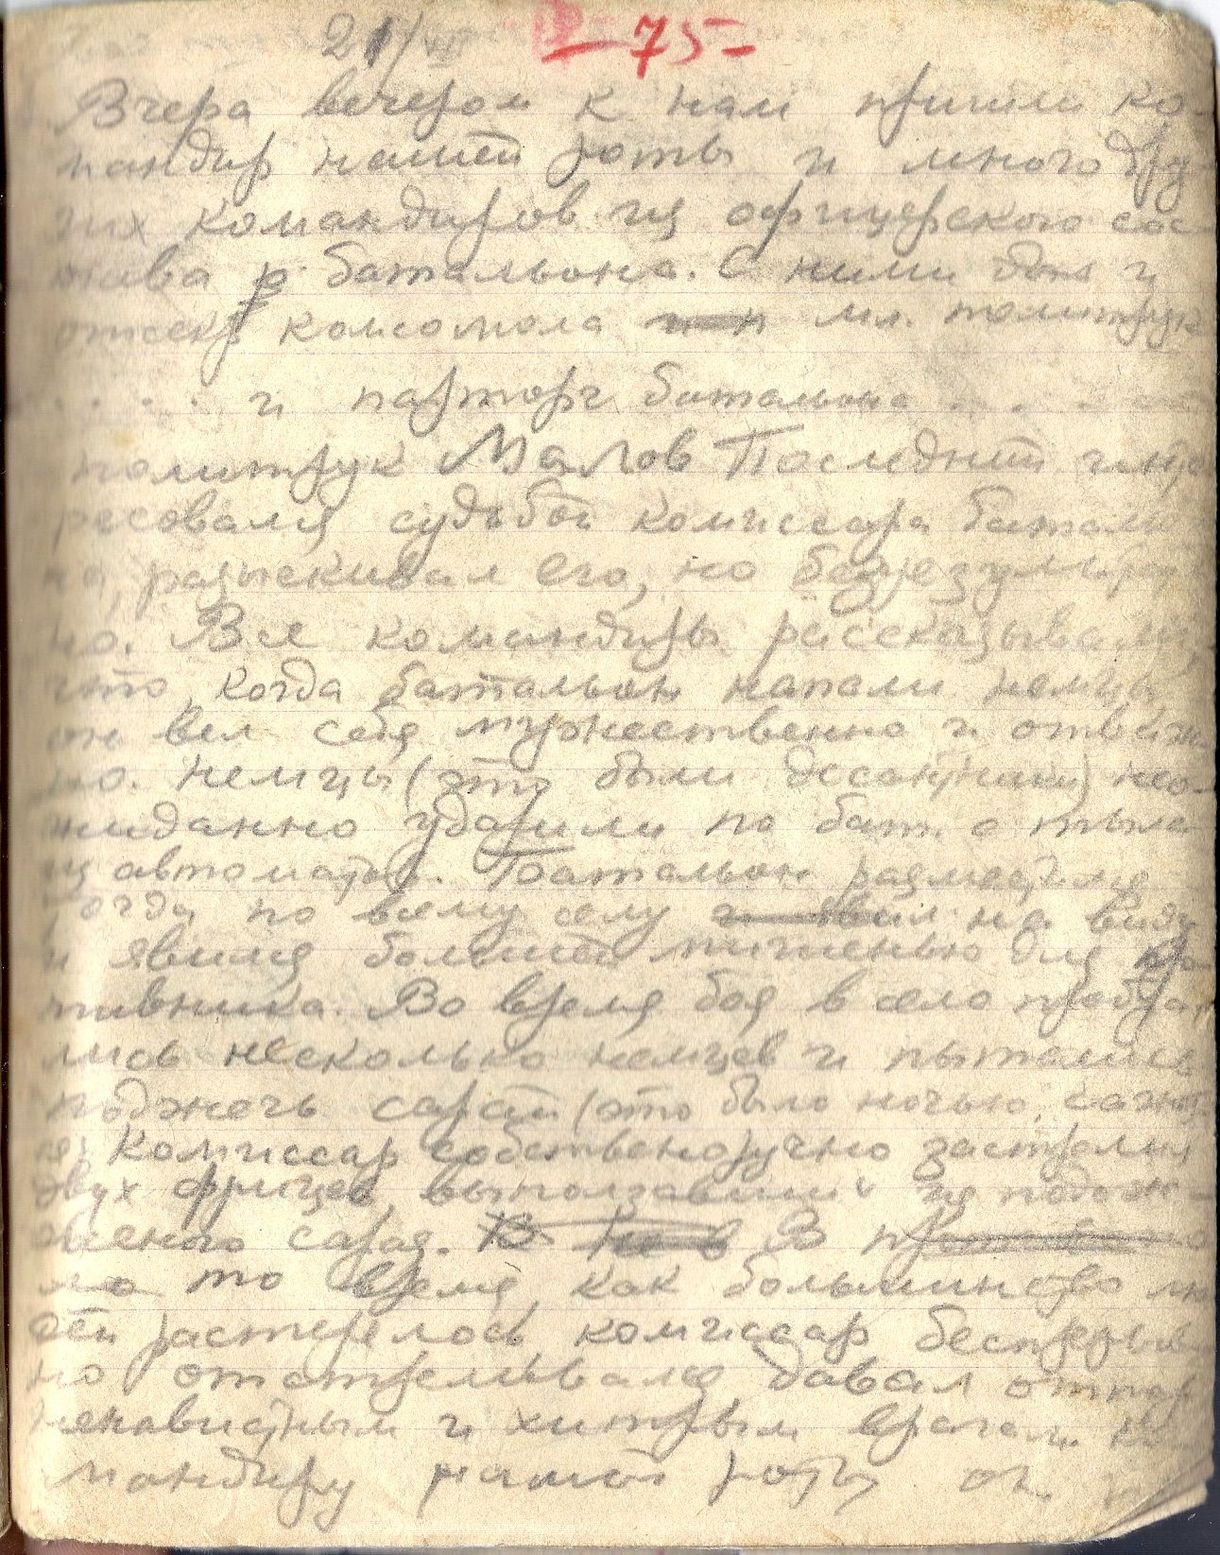 21/VIII -75-
Вчера вечером к нам пришли ко-
мандир нашей роты и много дру-
гих командиров из офицерского сос-
тава р. батальона. С ними был и
отсекр комсомола мл. политрук
. . . . и парторг батальона . . .
политрук Малов Последний инте
ресовался судьбой комиссара баталь
на, разыскивал его, но безрезультат
но. Все командиры рассказывали,
что, когда батальон напали немцы
он вел себя мужественно и отваж-
но. Немцы (это были десантники) нео-
жиданно ударили по бат. с тыла
из автоматов. Батальон разместился
тогда по всему селу на виду
и явился большой мишенью для про
тивника. Во время боя в село пробра
лись несколько немцев и пытались
поджечь сарай (это было ночью,
Комиссар собственоручно застрелил
двух фрицев, выползавших из подож-
женого сарая. В
то время, как большинство лю
дей растерялось комиссар беспрерыв
но отстреливался давал отпор
ненавистным и хитрым врагам. Ко
мандиру нашей роты он